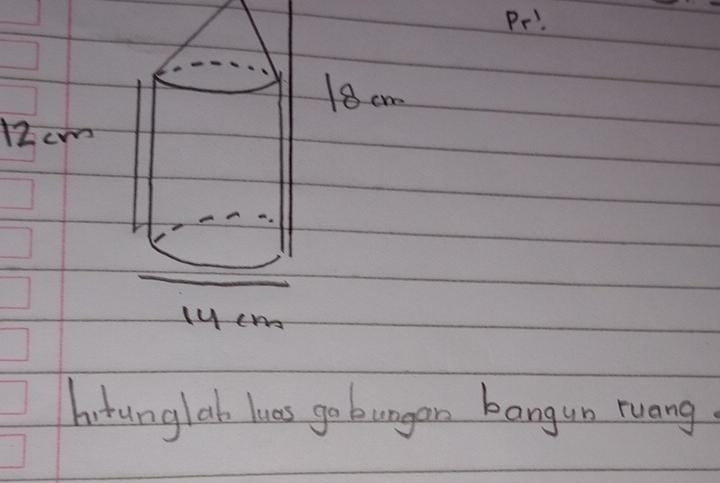 Pr!
18 cm
12 cm
14 cm
hitunglah luas gabungan bangun ruang